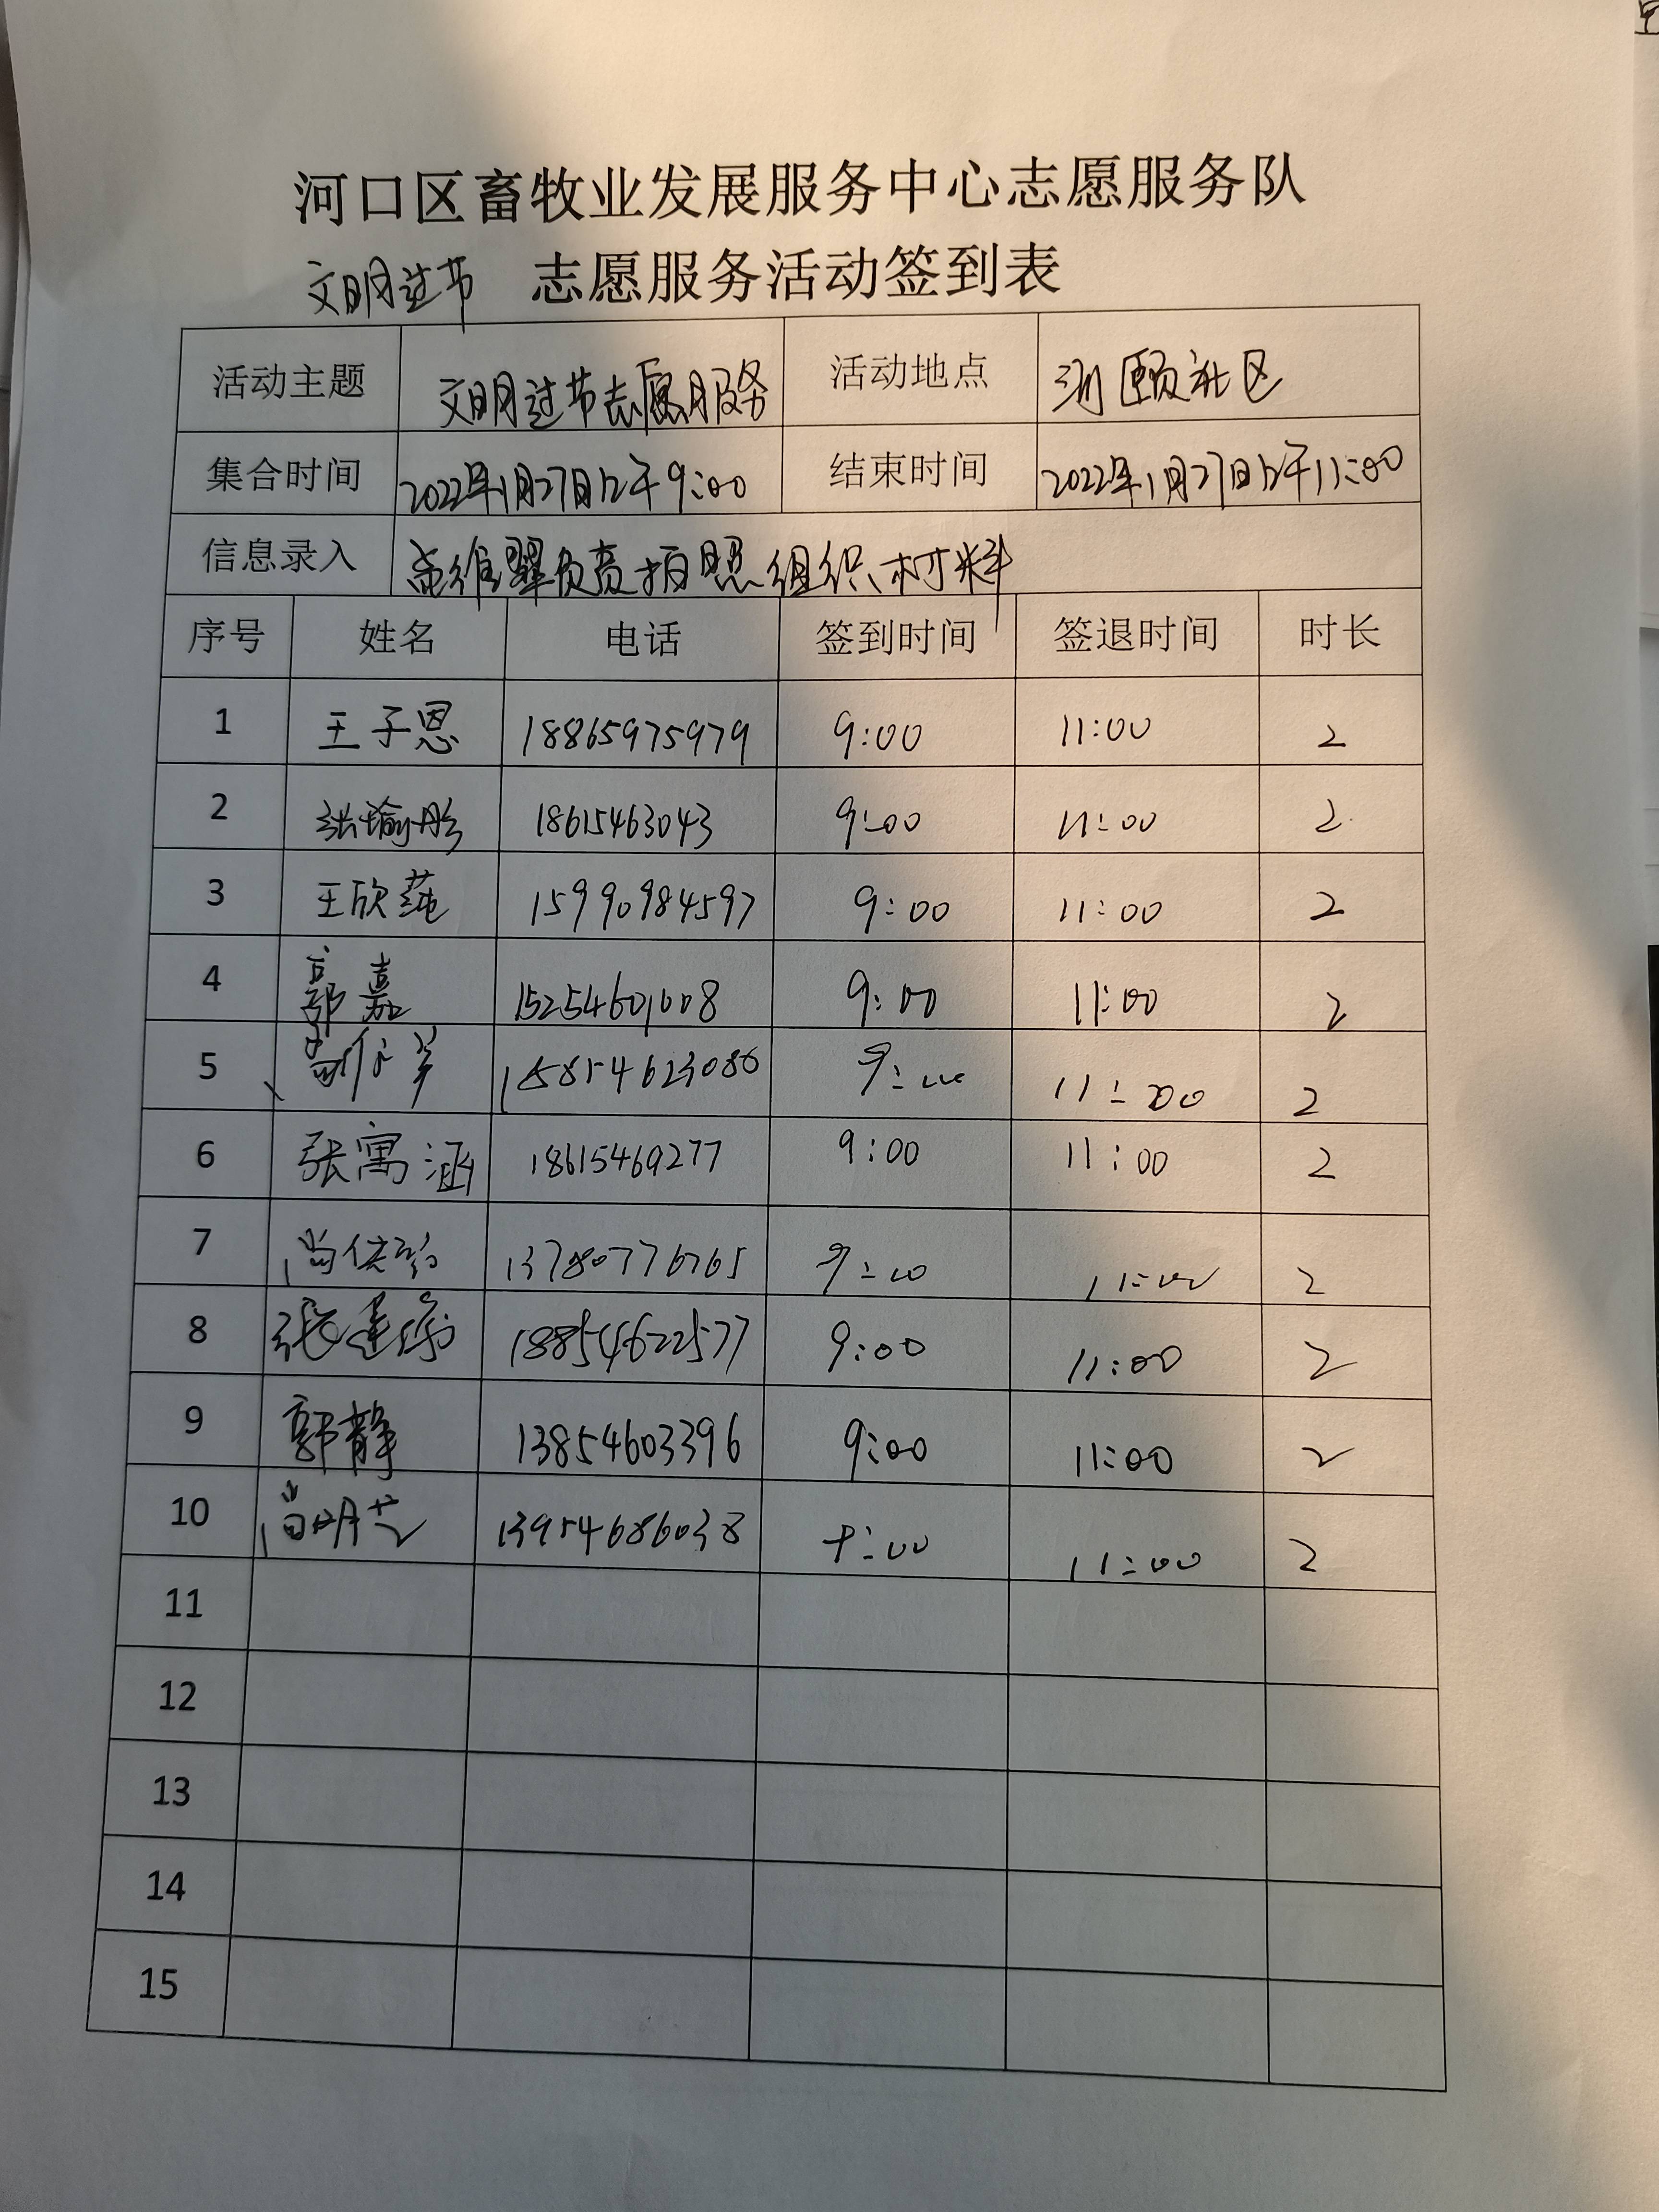 河口区畜牧业发展服务中心志愿服务队
文明过节 志愿服务活动签到表
活动主题 文明过节志愿服务 活动地点 颐社区
集合时间 2022年1月27日上午9:00 结束时间 2022年1月27日上午11:00
信息录入 负责拍照组织材料
序号 姓名 电话 签到时间 签退时间 时长
1 王子恩 18865975979 9:00 11:00 2
2 张瑜彤 18615463043 9:00 11:00 2
3 王欣莼 15990984597 9:00 11:00 2
4 郭嘉 15254601008 9:00 11:00 2
5 15854623086 9:00 11:00 2
6 张寓涵 18615469277 9:00 11:00 2
7 13780776765 9:00 11:00 2
8 18854622577 9:00 11:00 2
9 郭静 13854603396 9:00 11:00 2
10 尚明芝 13954686038 9:00 11:00 2
11
12
13
14
15